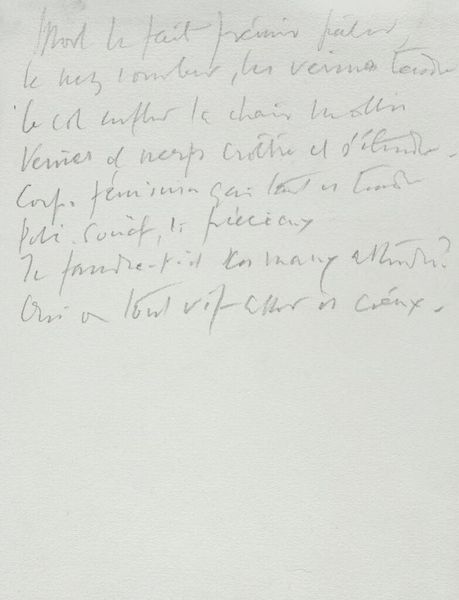 Mort le fait frémir pâlir
le nez courber, les veines tendre
le col enfler la chair mollir
Veines et nerfs croître et s'étendre.
Corps féminin qui tant es tendre
Poli, souëf, si précieux
Te faudra-t-il ces maux attendre?
Oui ou tout vif aller es cieux.